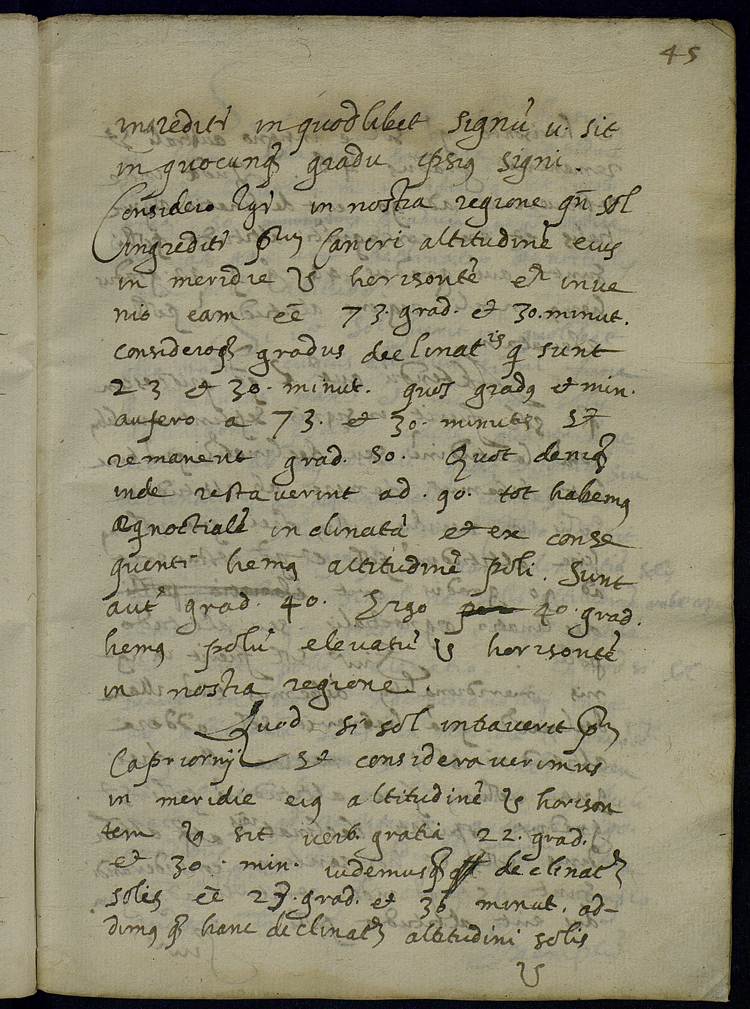 45
ingreditr̃ in quodlibet signũ u. sit
in quocunq̃ gradu ipsiꝰ signi.
Considero igr̃ in nostra regione qñ sol
ingreditr̃ pm̃ Cancri altitudinẽ eius
in meridie horisontẽ et inue
nio eam eẽ 73. grad. et 30. minut.
consideroq̃ gradus declinatis q̃ sunt
23 et 30. minut. quos gradꝰ et min.
aufero a 73. et 30. minutis et
remanent grad. 50. Quot deniq̃
inde restaverint ad .90. tot habemꝰ
æqnoctialẽ inclinatã et ex conse
quenti hemꝰ altitudinẽ poli. Sunt
aut̃ grad. 40. Ergo 40. grad.
hemꝰ polũ elevatũ horisontẽ
in nostra regione.
Quod si sol intraverit pm̃
Capriornij et consideraverimus
in meridie eiꝰ altitudinẽ horison
tem sit verb. gratia 22. grad.
et 30. min. uidemusq̃ declinatm̃
solis eẽ 23. grad. et 30 minut. ad-
dimꝰq̃ hanc declinatm̃ altitudini solis